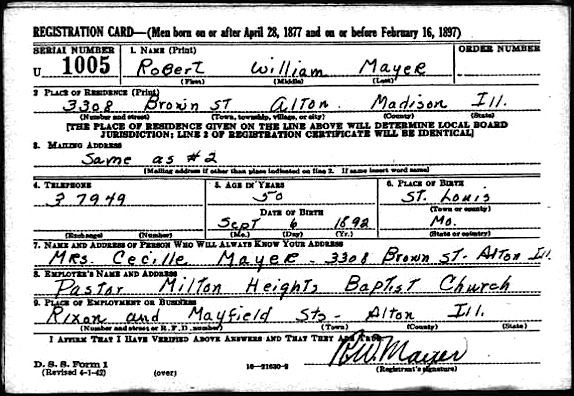 REGISTRATION CARD—(Men born on or after April 28, 1877 and on or before February 16, 1897)
SERIAL NUMBER 1. NAME (Print) ORDER NUMBER
U 1005 Robert William Mayer
(First) (Middle) (Last)
2. PLACE OF RESIDENCE (Print)
3308 Brown St Alton. Madison Ill.
(Number and street) (Town, township, village, or city) (County) (State)
[THE PLACE OF RESIDENCE GIVEN ON THE LINE ABOVE WILL DETERMINE LOCAL BOARD
JURISDICTION; LINE 2 OF REGISTRATION CERTIFICATE WILL BE IDENTICAL]
3. MAILING ADDRESS
Same as #2
(Mailing address if other than place indicated on line 2. If same insert word same)
4. TELEPHONE 5. AGE IN YEARS 6. PLACE OF BIRTH
3 7949 50 St. Louis
(Town or county)
DATE OF BIRTH
Sept 6 1892 Mo.
(Exchange) (Number) (Mo.) (Day) (Yr.) (State or country)
7. NAME AND ADDRESS OF PERSON WHO WILL ALWAYS KNOW YOUR ADDRESS
Mrs. Cecille Mayer - 3308 Brown St- Alton Ill.
8. EMPLOYER'S NAME AND ADDRESS
Pastor Milton Heights Baptist Church
9. PLACE OF EMPLOYMENT OR BUSINESS
Rixon and Mayfield Sts- Alton Ill.
(Number and street or R.F.D. number) (Town) (County) (State)
I AFFIRM THAT I HAVE VERIFIED ABOVE ANSWERS AND THAT THEY ARE TRUE.
R.W. Mayer
D. S. S. Form 1 16—21630-2 (Registrant's signature)
(Revised 4-1-42) (over)